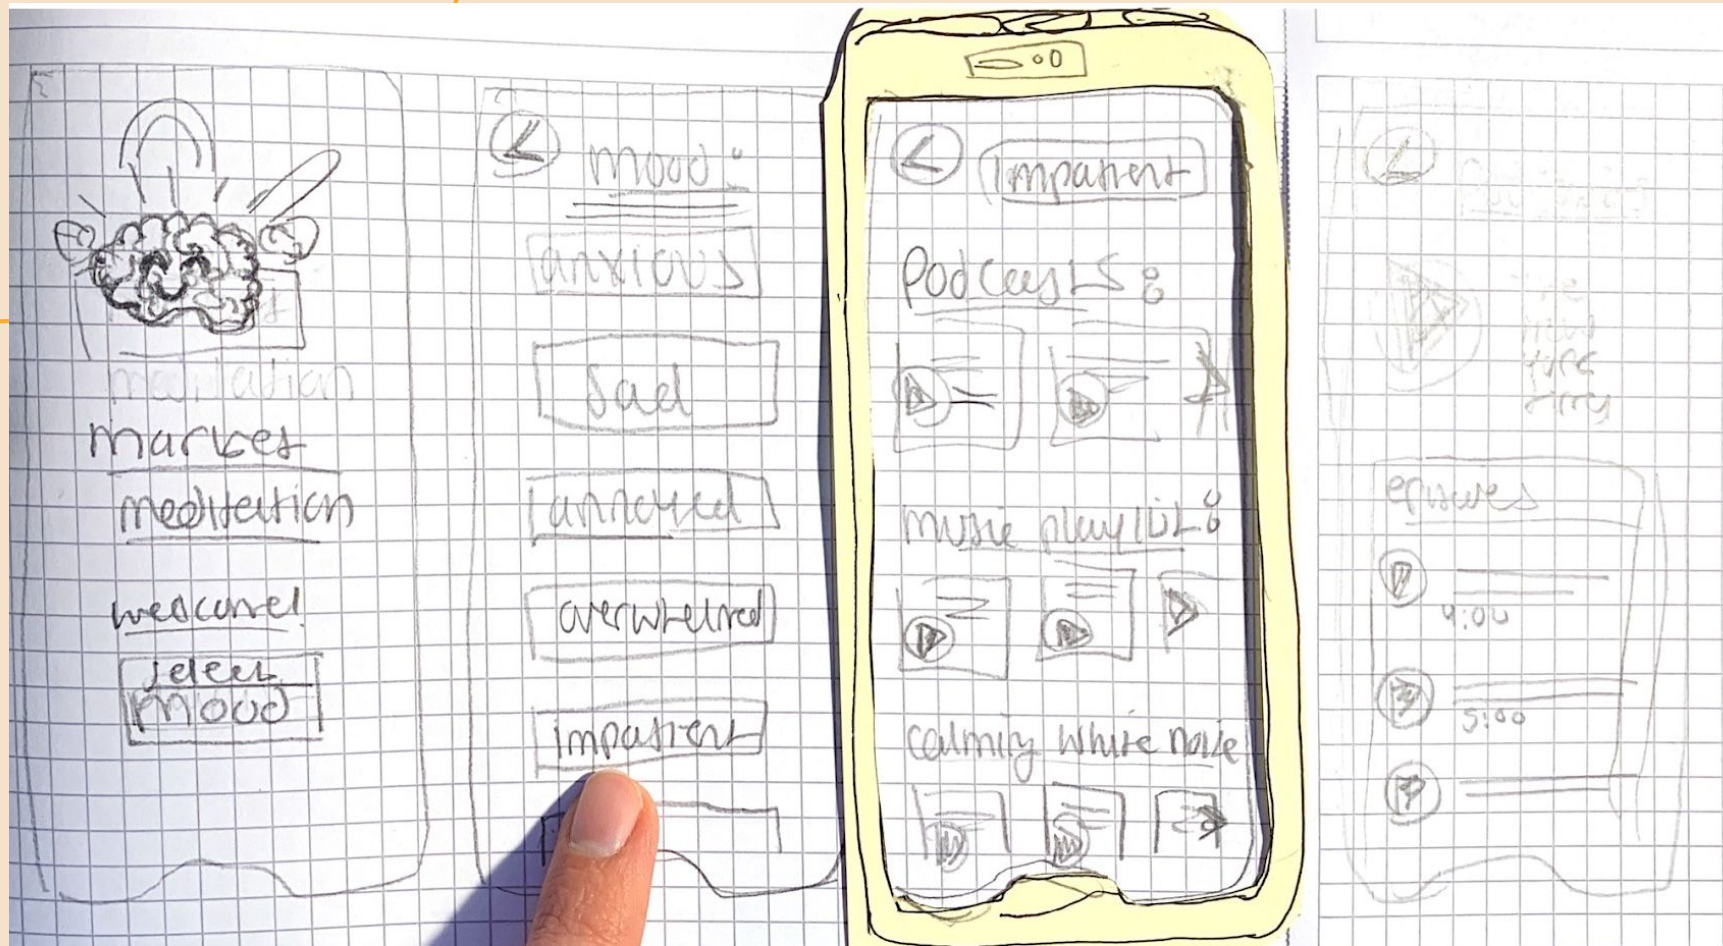 meditation
market
meditation
welcome!
select
mood
mood:
anxious
sad
annoyed
overwhelmed
impatient
impatient
Podcasts:
music playlist:
calming white noise
episodes
4:00
5:00